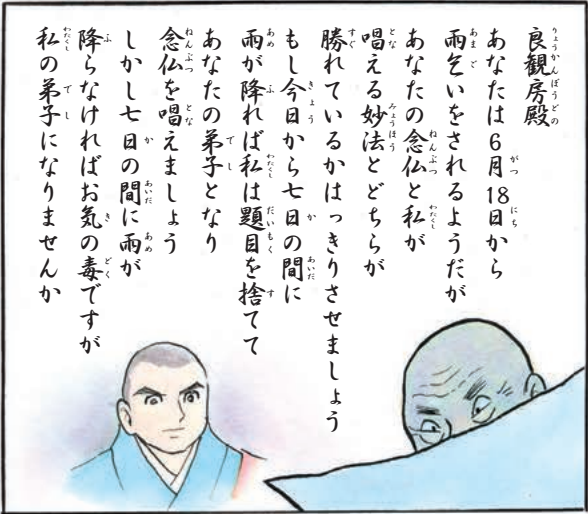 良観房殿
あなたは6月18日から
雨乞いをされるようだが
あなたの念仏と私が
唱える妙法とどちらが
勝れているかはっきりさせましょう
もし今日から七日の間に
雨が降れば私は題目を捨てて
あなたの弟子となり
念仏を唱えましょう
しかし七日の間に雨が
降らなければお気の毒ですが
私の弟子になりませんか